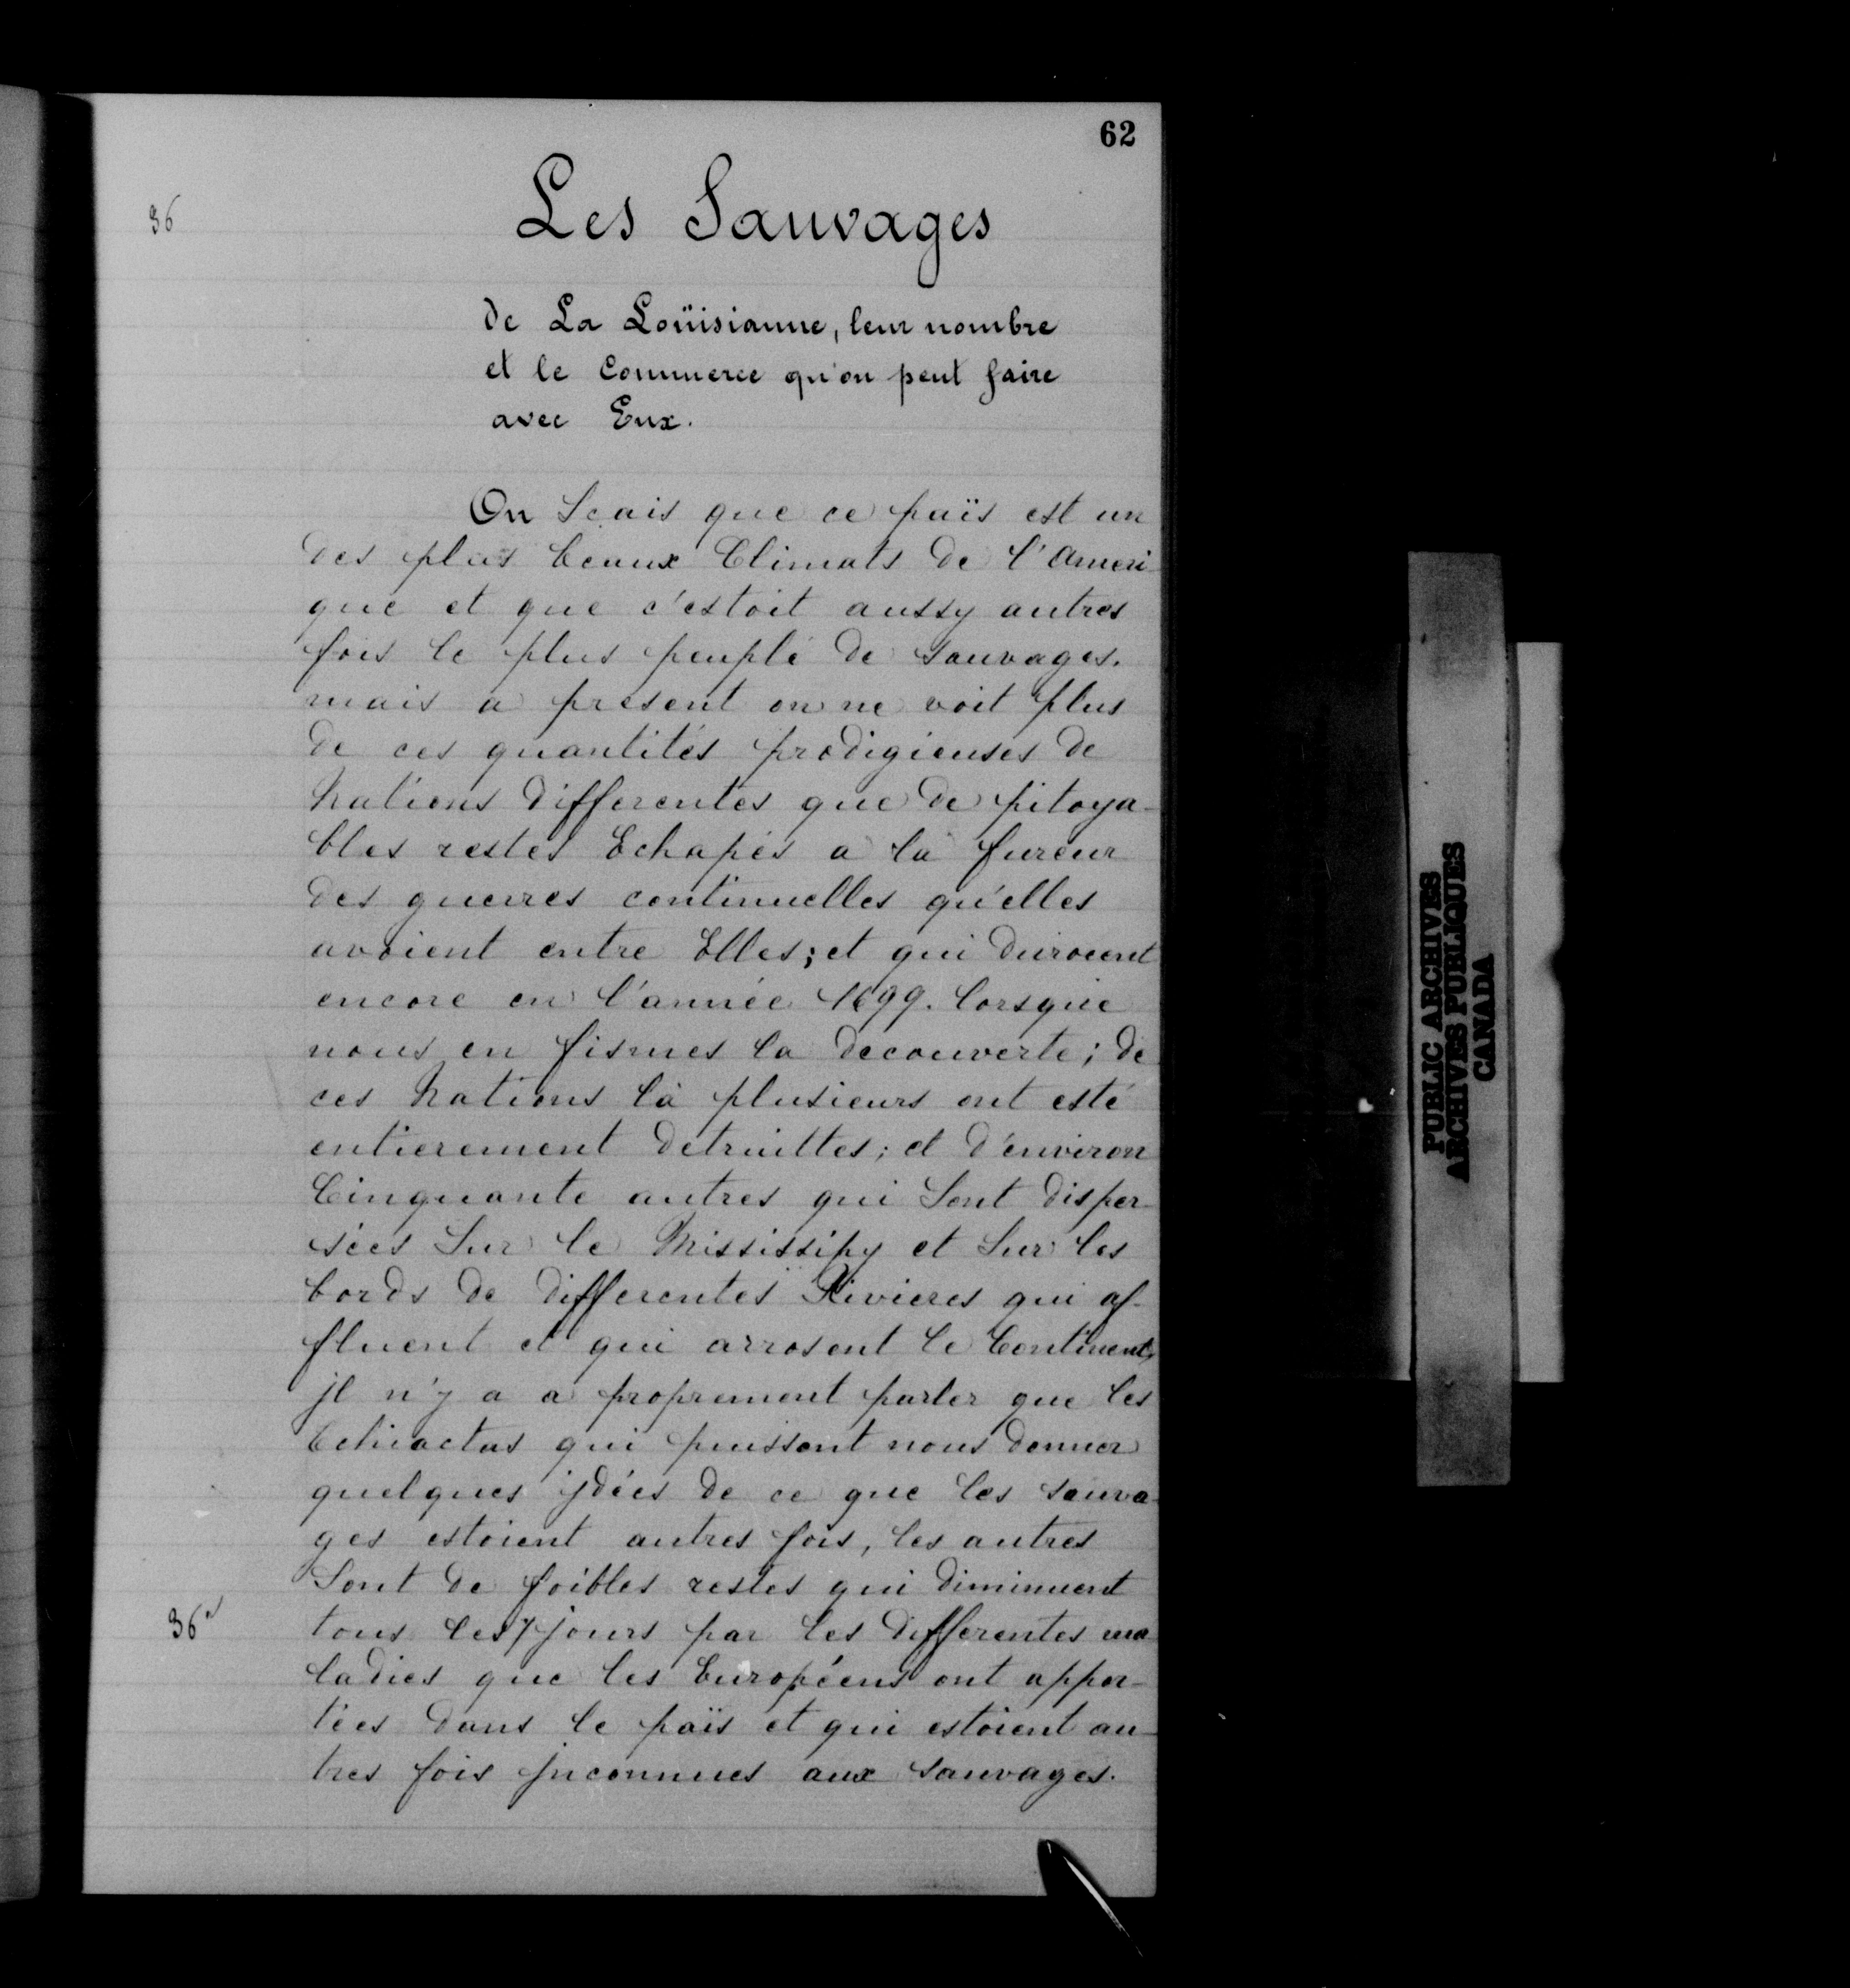 62
36
Les Sauvages
de La Loüisianne, leur nombre
et le Commerce qu'on peut faire
avec Eux.
On Scais que ce païs est un
des plus beaux Climats de l'Ameri
que et que c'estoit aussy autres
fois le plus peuplé de sauvages.
mais a present on ne voit plus
de ces quantités prodigieuses de
Nations differentes que de pitoya-
bles restes Echapés a la fureur
des guerres continuelles qu'elles
avoient entre Elles; et qui duroient
encore en l'année 1699. lorsque
nous en fismes la decouverte; de
ces Nations là plusieurs ont esté
entierement detruittes; et d'environ
Cinquante autres qui Sont disper-
sées Sur le Mississipy et Sur les
bords de differentes Rivieres qui af-
fluent et qui arrosent le Continent,
jl n'y a a proprement parler que les
Tchactas qui puissent nous donner
quelques ydées de ce que les sauva
ges estoient autres fois, les autres
Sont de foibles restes qui diminuent
36vs
tous les/jours par les differentes ma
ladies que les Européens ont appor-
tées dans le païs et qui estoient au-
tres fois jnconnues aux sauvages.
PUBLIC ARCHIVES
ARCHIVES PUBLIQUES
CANADA